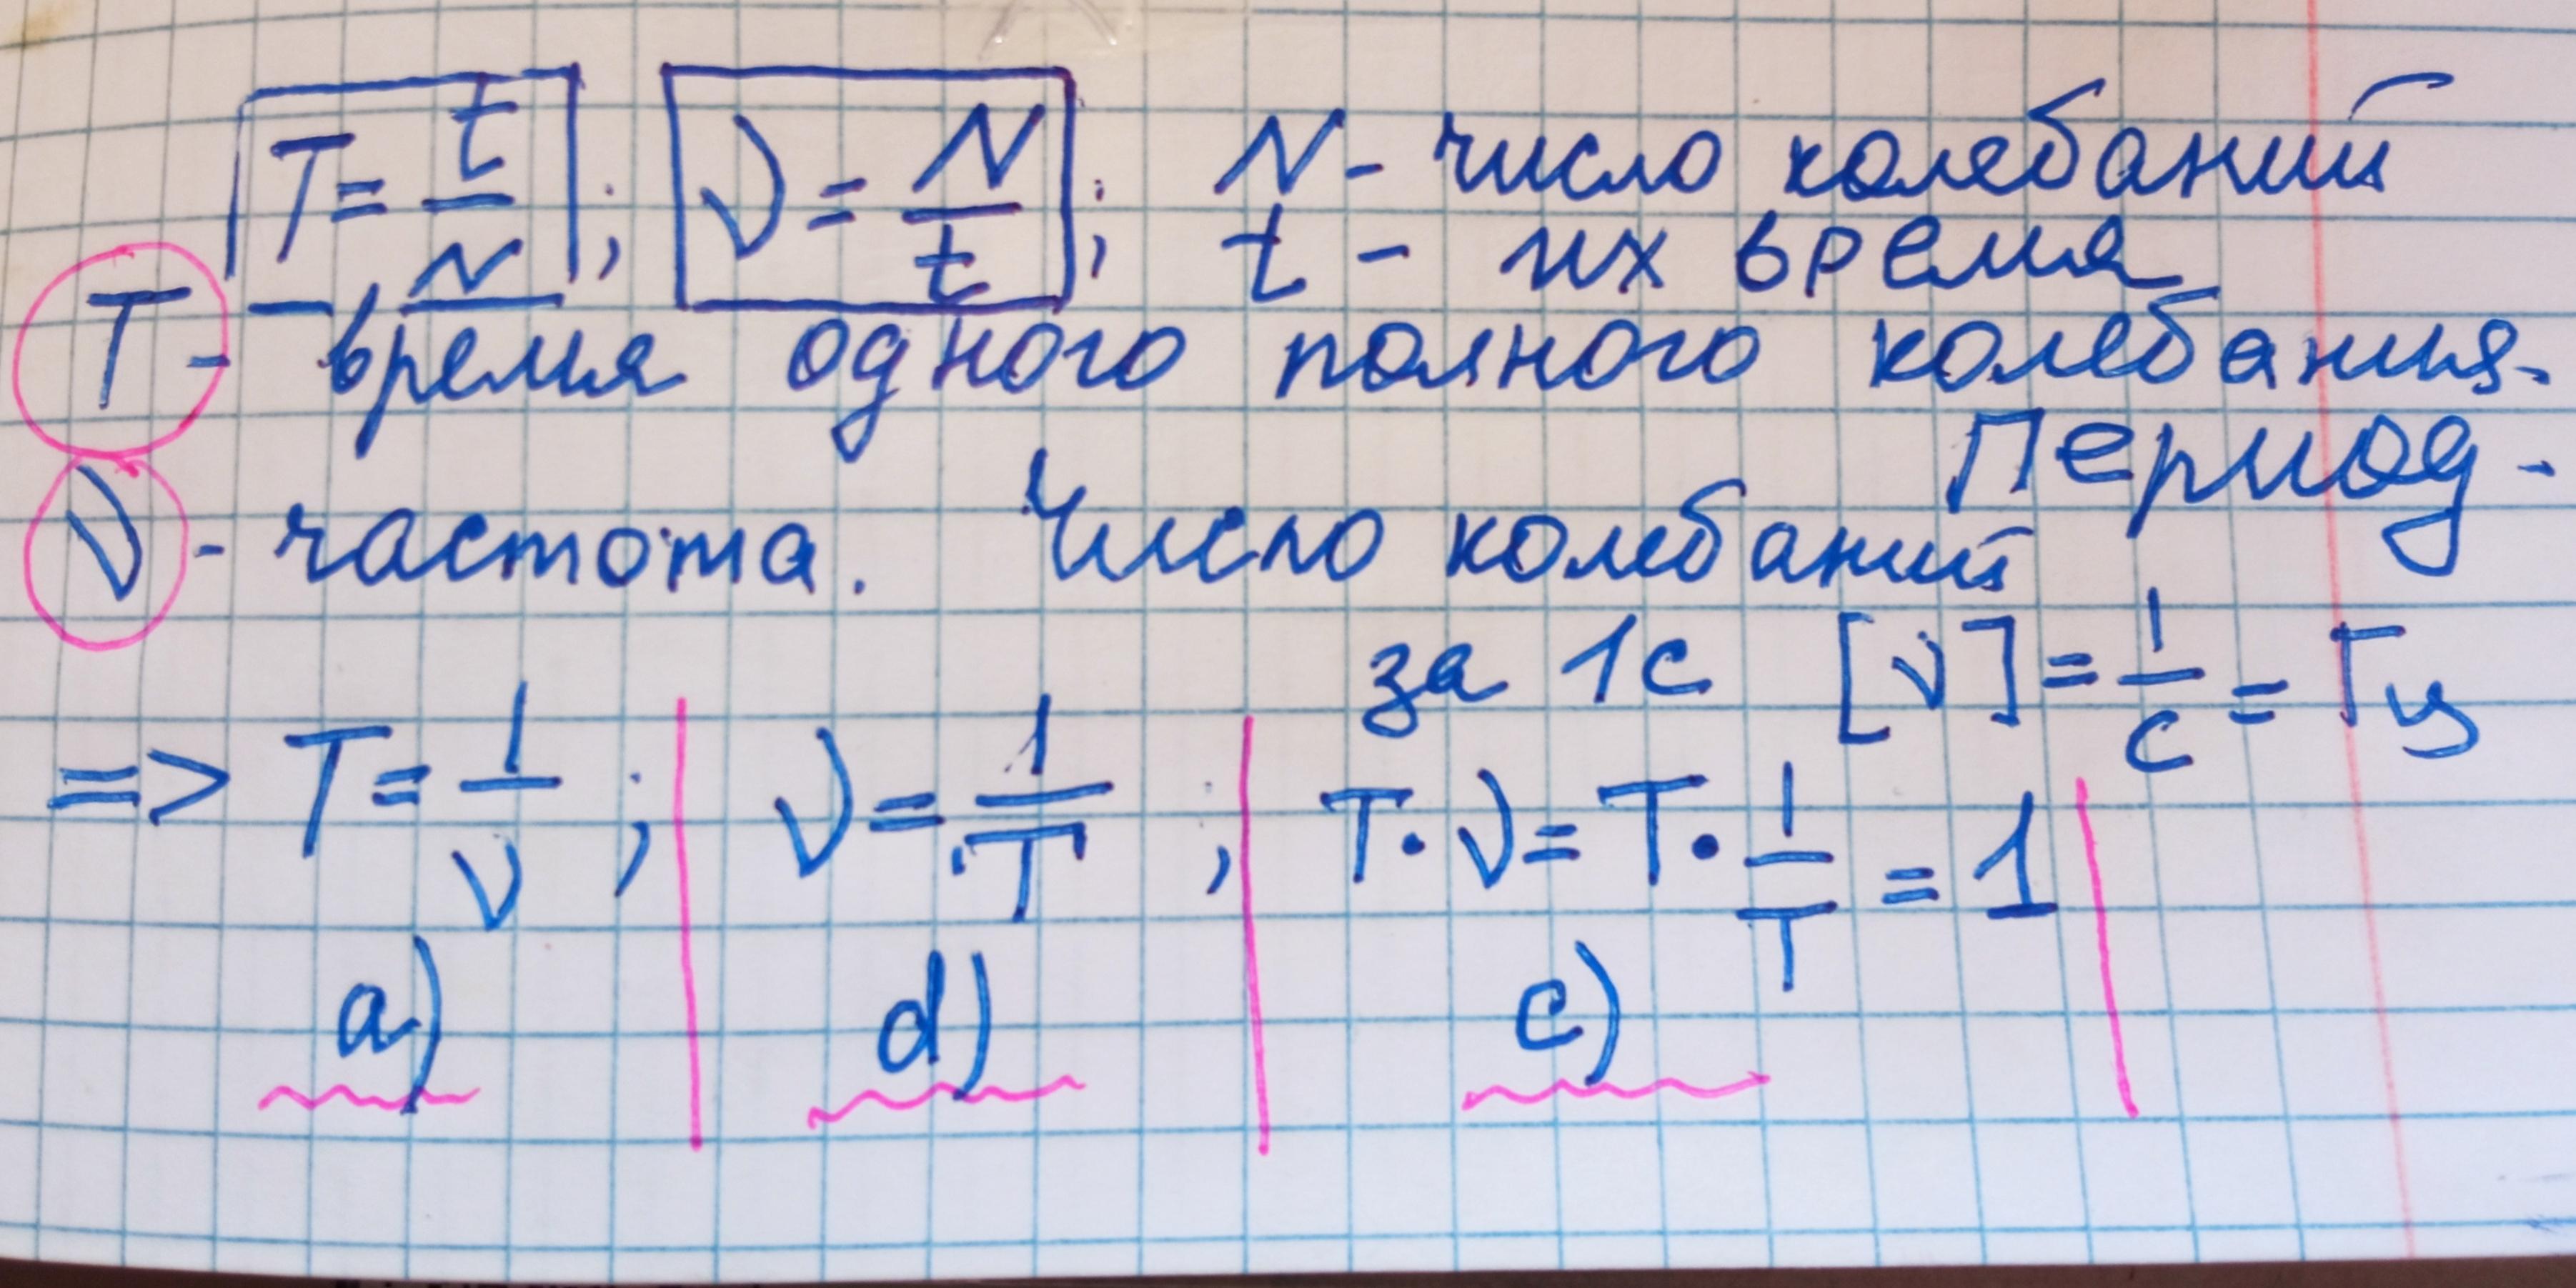 T = t/N ; ν = N/t ; N - число колебаний
t - их время
T - время одного полного колебания.
Период.
ν - частота. Число колебаний
за 1с [ν] = 1/с = Гц
=> T = 1/ν ; ν = 1/T ; T · ν = T · 1/T = 1
a) d) c)